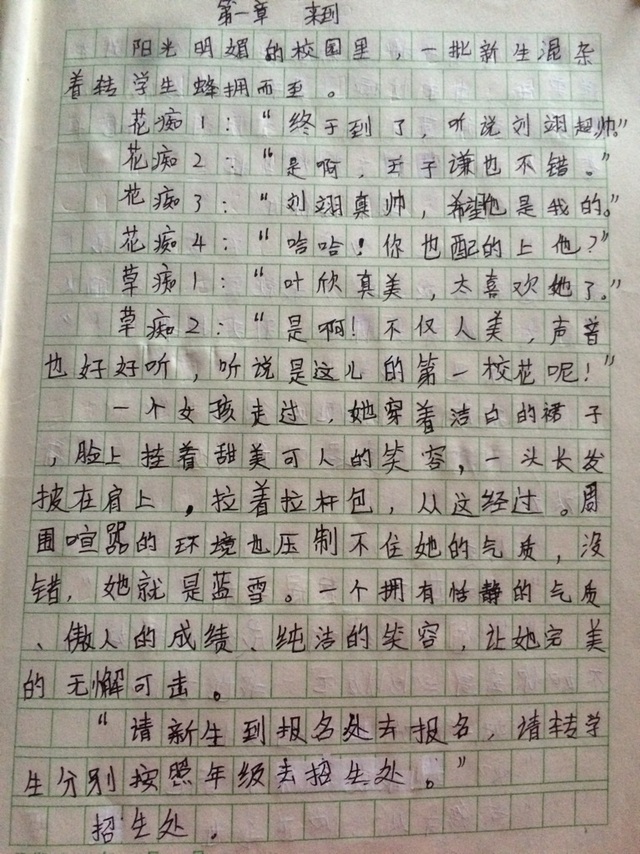 第一章 来到
阳光明媚的校园里，一批新生混杂
着转学生蜂拥而至。
花痴1：“终于到了，听说刘翊超帅。”
花痴2：“是啊，王子谦也不错。”
花痴3：“刘翊真帅，希望他是我的。”
花痴4：“哈哈！你也配的上他？”
草痴1：“叶欣真美，太喜欢她了。”
草痴2：“是啊！不仅人美，声音
也好好听，听说是这儿的第一校花呢！”
一个女孩走过，她穿着洁白的裙子
，脸上挂着甜美可人的笑容，一头长发
披在肩上，拉着拉杆包，从这经过。周
围喧嚣的环境也压制不住她的气质，没
错，她就是蓝雪。一个拥有恬静的气质
、傲人的成绩、纯洁的笑容，让她完美
的无懈可击。
“请新生到报名处去报名，请转学
生分别按照年级去招生处。”
招生处，